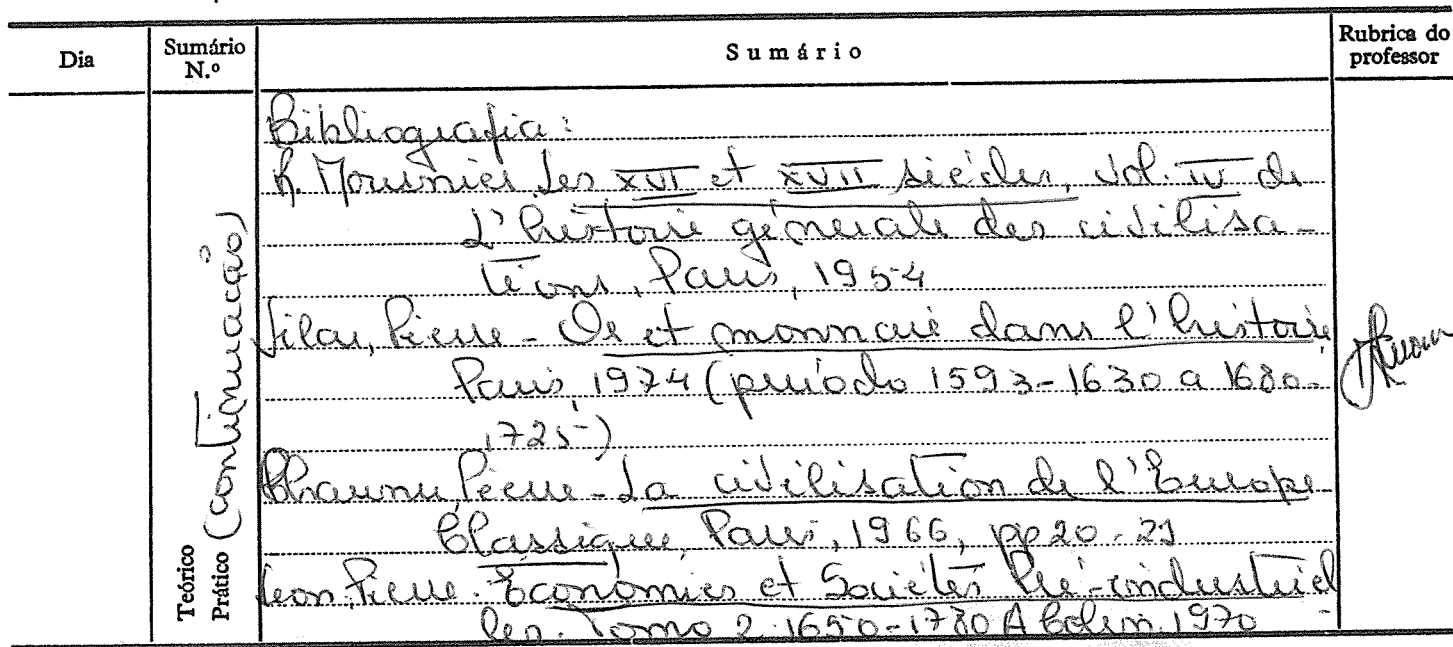 Dia
Sumário N.º
Sumário
Rubrica do professor
Teórico
Prático (continuação)
Bibliografia:
R. Mousnier Les XVI et XVII siécles, Vol. IV de
L'histoire génerale des civilisa-
tions, Paris, 1954
Vilar, Pierre - Or et monnaie dans l'histoire
Paris, 1974 (período 1593-1630 a 1680-
1725)
Chaunu Pierre - La civilisation de l'Europe
Classique, Paris, 1966, pp 20-21
Leon, Pierre. Économies et Sociétés Pré-industriel
les. Tomo 2. 1650-1780 A Colin. 1970